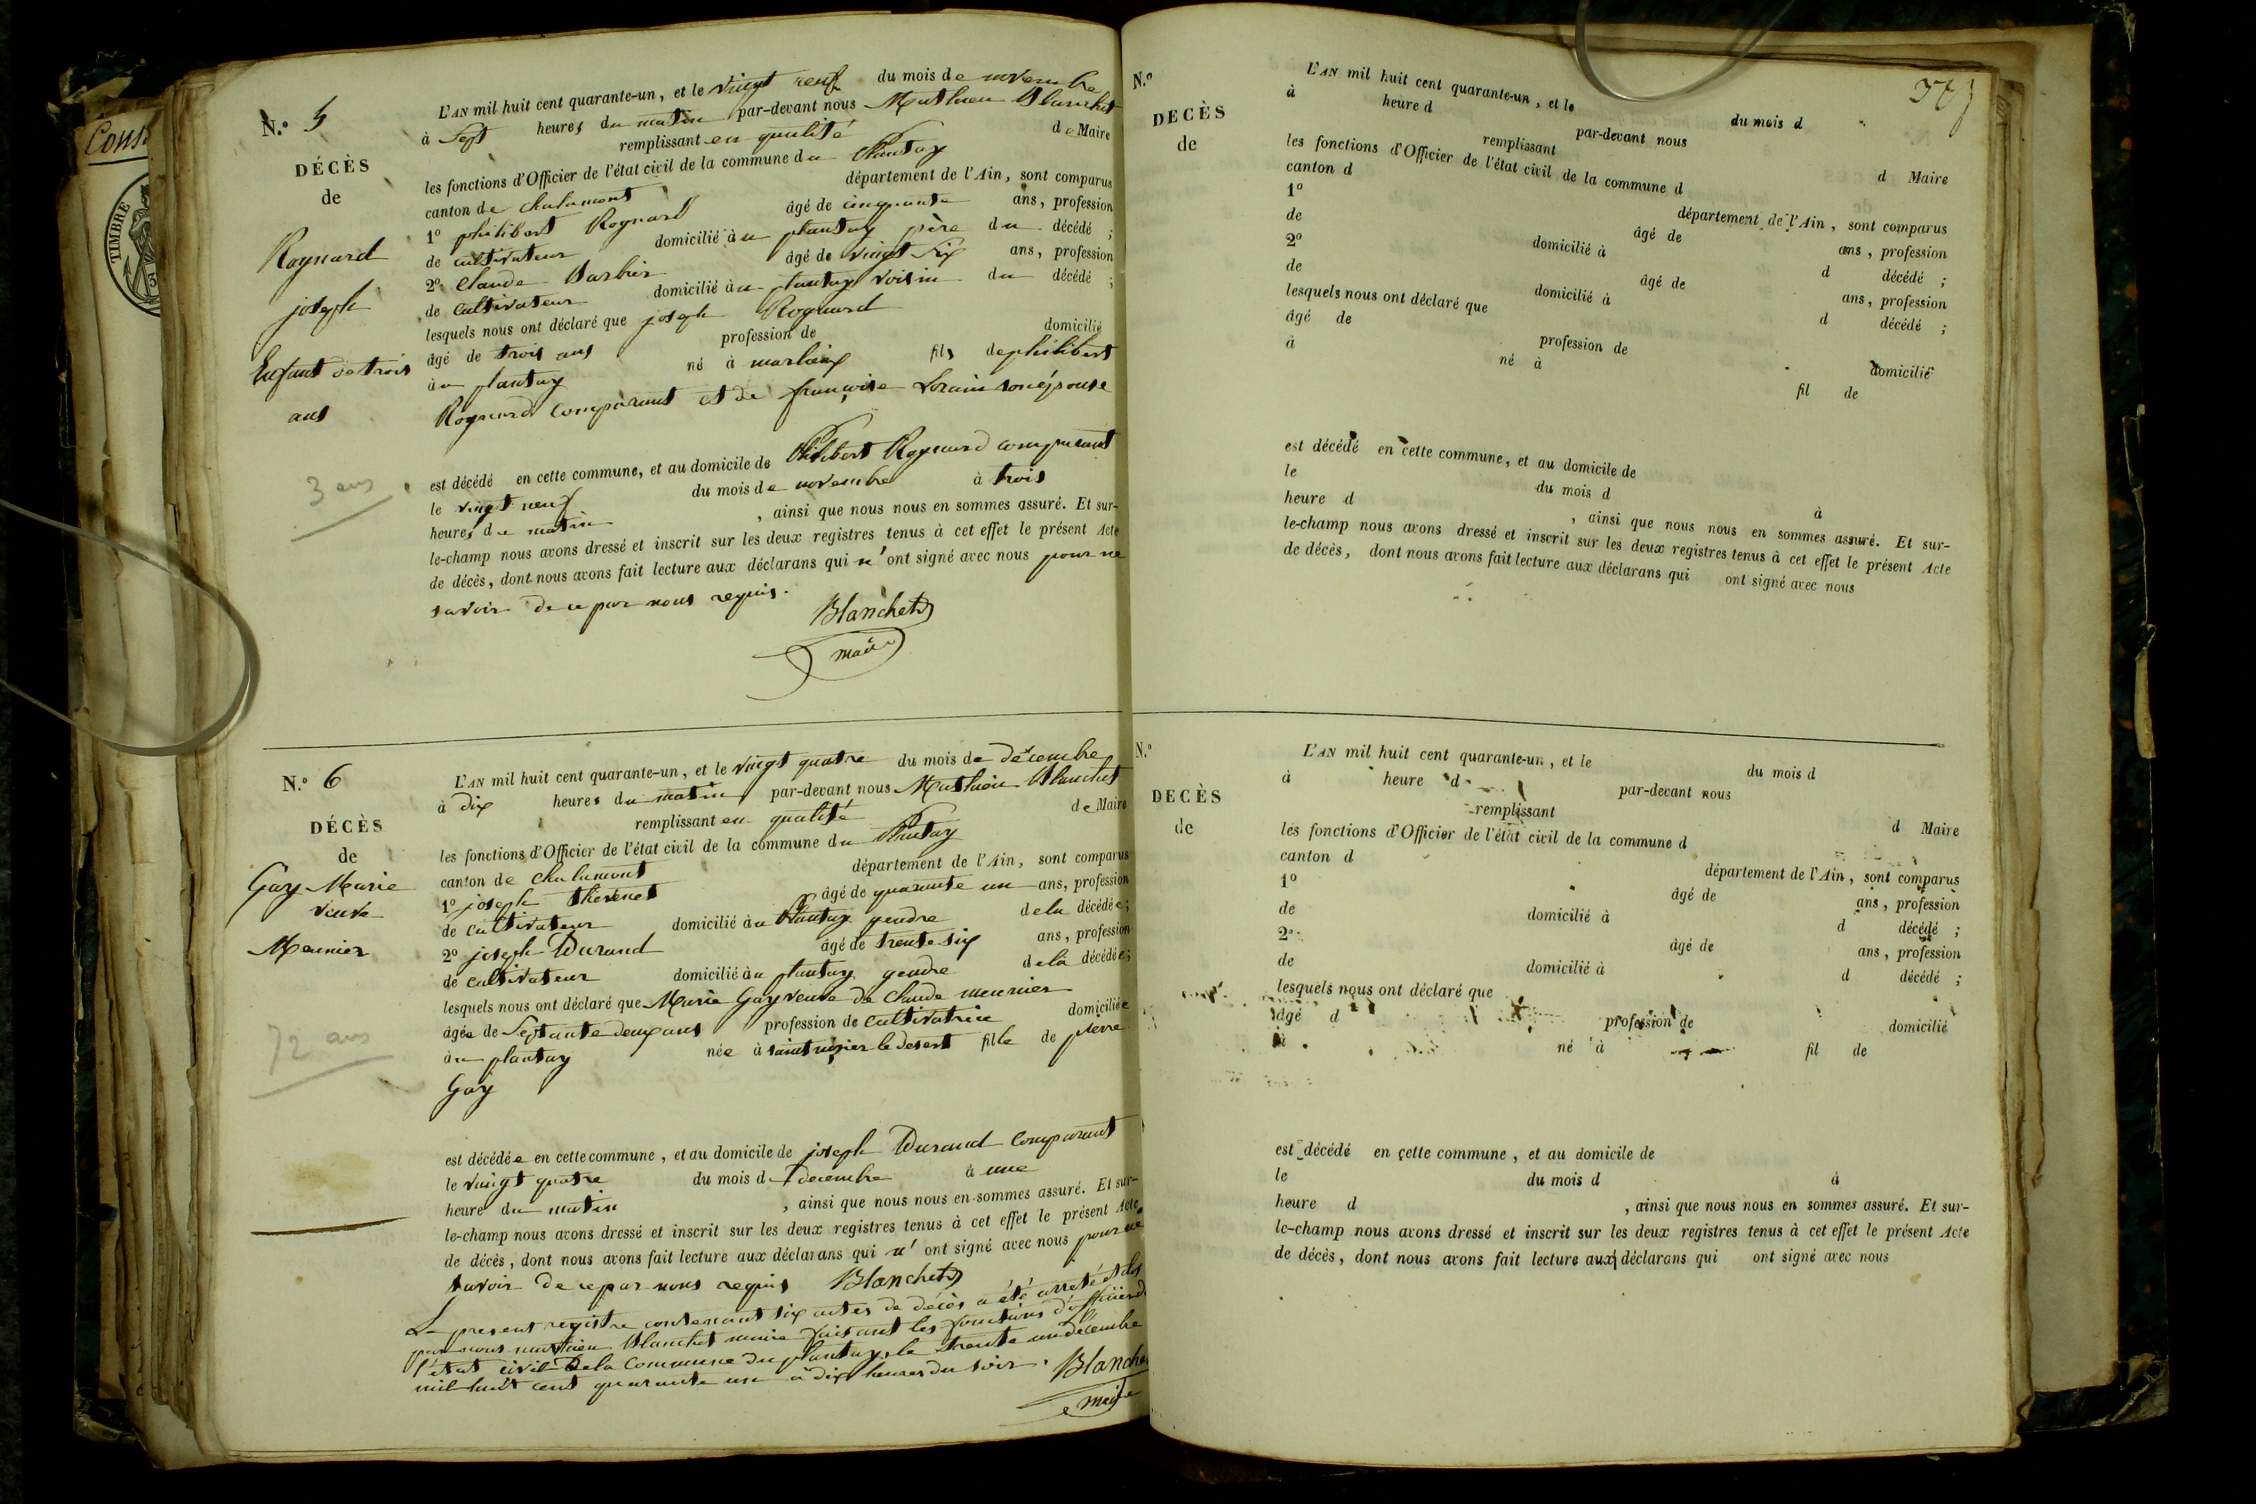 Cons
TIMBRE
N.° 5
DÉCÈS
de
Roynard
joseph
Enfant de trois
ans
3 ans
L'AN mil huit cent quarante-un, et le vingt neuf du mois de novembre
à Sept heures du matin par-devant nous Mathieu Blanchet
remplissant en qualité de Maire
les fonctions d'Officier de l'état civil de la commune du Plantay
canton de chalamont département de l'Ain, sont comparus
1° philibert Roynard âgé de cinquante ans, profession
de cultivateur domicilié au plantay père du décédé ;
2° Claude Barbier âgé de vingt six ans, profession
de cultivateur domicilié au plantay voisin du décédé ;
lesquels nous ont déclaré que joseph Roynard
âgé de trois ans profession de domicilié
au plantay né à marlieux fils de philibert
Roynard comparant et de françoise Lorain son épouse
est décédé en cette commune, et au domicile de Philibert Roynard comparant
le vingt neuf du mois de novembre à trois
heures du matin , ainsi que nous nous en sommes assuré. Et sur-
le-champ nous avons dressé et inscrit sur les deux registres tenus à cet effet le présent Acte
de décès, dont nous avons fait lecture aux déclarans qui n'ont signé avec nous pour ne
savoir de ce par nous requis.
Blanchet
maire
N.° 6
DÉCÈS
de
Gay Marie
veuve
Meunier
72 ans
L'AN mil huit cent quarante-un, et le vingt quatre du mois de décembre
à dix heures du matin par-devant nous Mathieu Blanchet
remplissant en qualité de Maire
les fonctions d'Officier de l'état civil de la commune du Plantay
canton de chalamont département de l'Ain, sont comparus
1° joseph thevenet âgé de quarante un ans, profession
de cultivateur domicilié au Plantay gendre de la décédée ;
2° joseph Durand âgé de trente six ans, profession
de cultivateur domicilié au plantay gendre de la décédée ;
lesquels nous ont déclaré que Marie Gay veuve de Claude meunier
âgée de Septante deux ans profession de cultivatrice domiciliée
au plantay née à saint nizier le desert fille de pierre
Gay
est décédée en cette commune, et au domicile de joseph Durand comparant
le vingt quatre du mois de decembre à une
heure du matin , ainsi que nous nous en sommes assuré. Et sur-
le-champ nous avons dressé et inscrit sur les deux registres tenus à cet effet le présent Acte
de décès, dont nous avons fait lecture aux déclarans qui n'ont signé avec nous pour ne
savoir de ce par nous requis Blanchet
Le present registre contenant six actes de décès a été arreté et clos
par nous mathieu Blanchet maire faisant les fonctions d'officier de
l'état civil de la commune du plantay, le trente un decembre
mil huit cent quarante un à dix heures du soir. Blanchet
maire
N.°
DECÈS
de
L'AN mil huit cent quarante-un, et le du mois d
à heure d par-devant nous
remplissant d Maire
les fonctions d'Officier de l'état civil de la commune d
canton d département de l'Ain, sont comparus
1° âgé de ans, profession
de domicilié à d décédé ;
2° âgé de ans, profession
de domicilié à d décédé ;
lesquels nous ont déclaré que
âgé de profession de domicilié
à né à fil de
est décédé en cette commune, et au domicile de
le du mois d à
heure d , ainsi que nous nous en sommes assuré. Et sur-
le-champ nous avons dressé et inscrit sur les deux registres tenus à cet effet le présent Acte
de décès, dont nous avons fait lecture aux déclarans qui ont signé avec nous
N.°
DECÈS
de
L'AN mil huit cent quarante-un, et le du mois d
à heure d par-devant nous
remplissant d Maire
les fonctions d'Officier de l'état civil de la commune d
canton d département de l'Ain, sont comparus
1° âgé de ans, profession
de domicilié à d décédé ;
2° âgé de ans, profession
de domicilié à d décédé ;
lesquels nous ont déclaré que
âgé d profession de domicilié
à né à fil de
est décédé en cette commune, et au domicile de
le du mois d à
heure d , ainsi que nous nous en sommes assuré. Et sur-
le-champ nous avons dressé et inscrit sur les deux registres tenus à cet effet le présent Acte
de décès, dont nous avons fait lecture aux déclarans qui ont signé avec nous